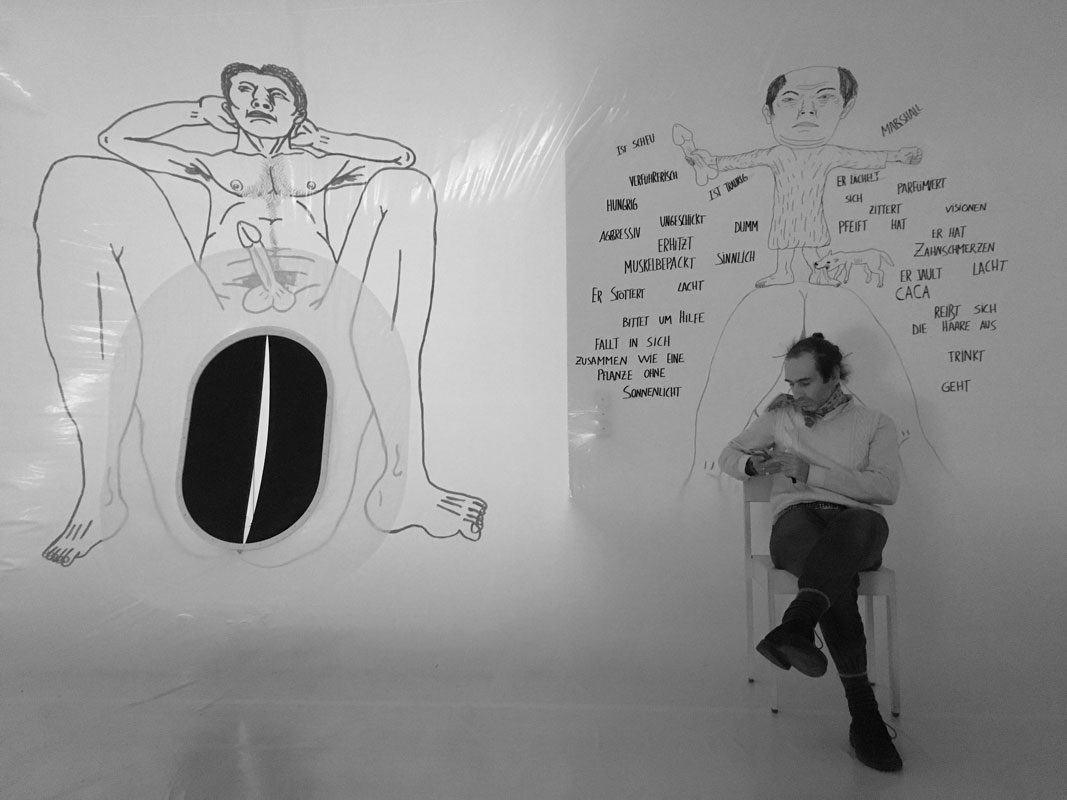 IST SCHEU
VERFÜHRERISCH
IST TRAURIG
HUNGRIG
UNGESCHICKT
DUMM
AGGRESSIV
ERHITZT
MUSKELBEPACKT
SINNLICH
ER STOTTERT
LACHT
BITTET UM HILFE
FALLT IN SICH
ZUSAMMEN WIE EINE
PFLANZE OHNE
SONNENLICHT
MARSHALL
ER LÄCHELT
PARFÜMIERT
SICH
ZITTERT
VISIONEN
PFEIFT HAT
ER HAT
ZAHNSCHMERZEN
ER JAULT LACHT
CACA
REIẞT SICH
DIE HAARE AUS
TRINKT
GEHT